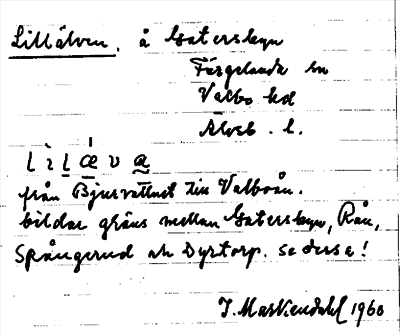 Lillälven, å Gatersbyn
Färgelanda sn
Valbo hd
Älvsb. l.
från Bjursvattnet till Valboån.
bildar gräns mellan Gatersbyn, Rån,
Spångerud och Dyrtorp. se dessa!
J. Markendahl 1960